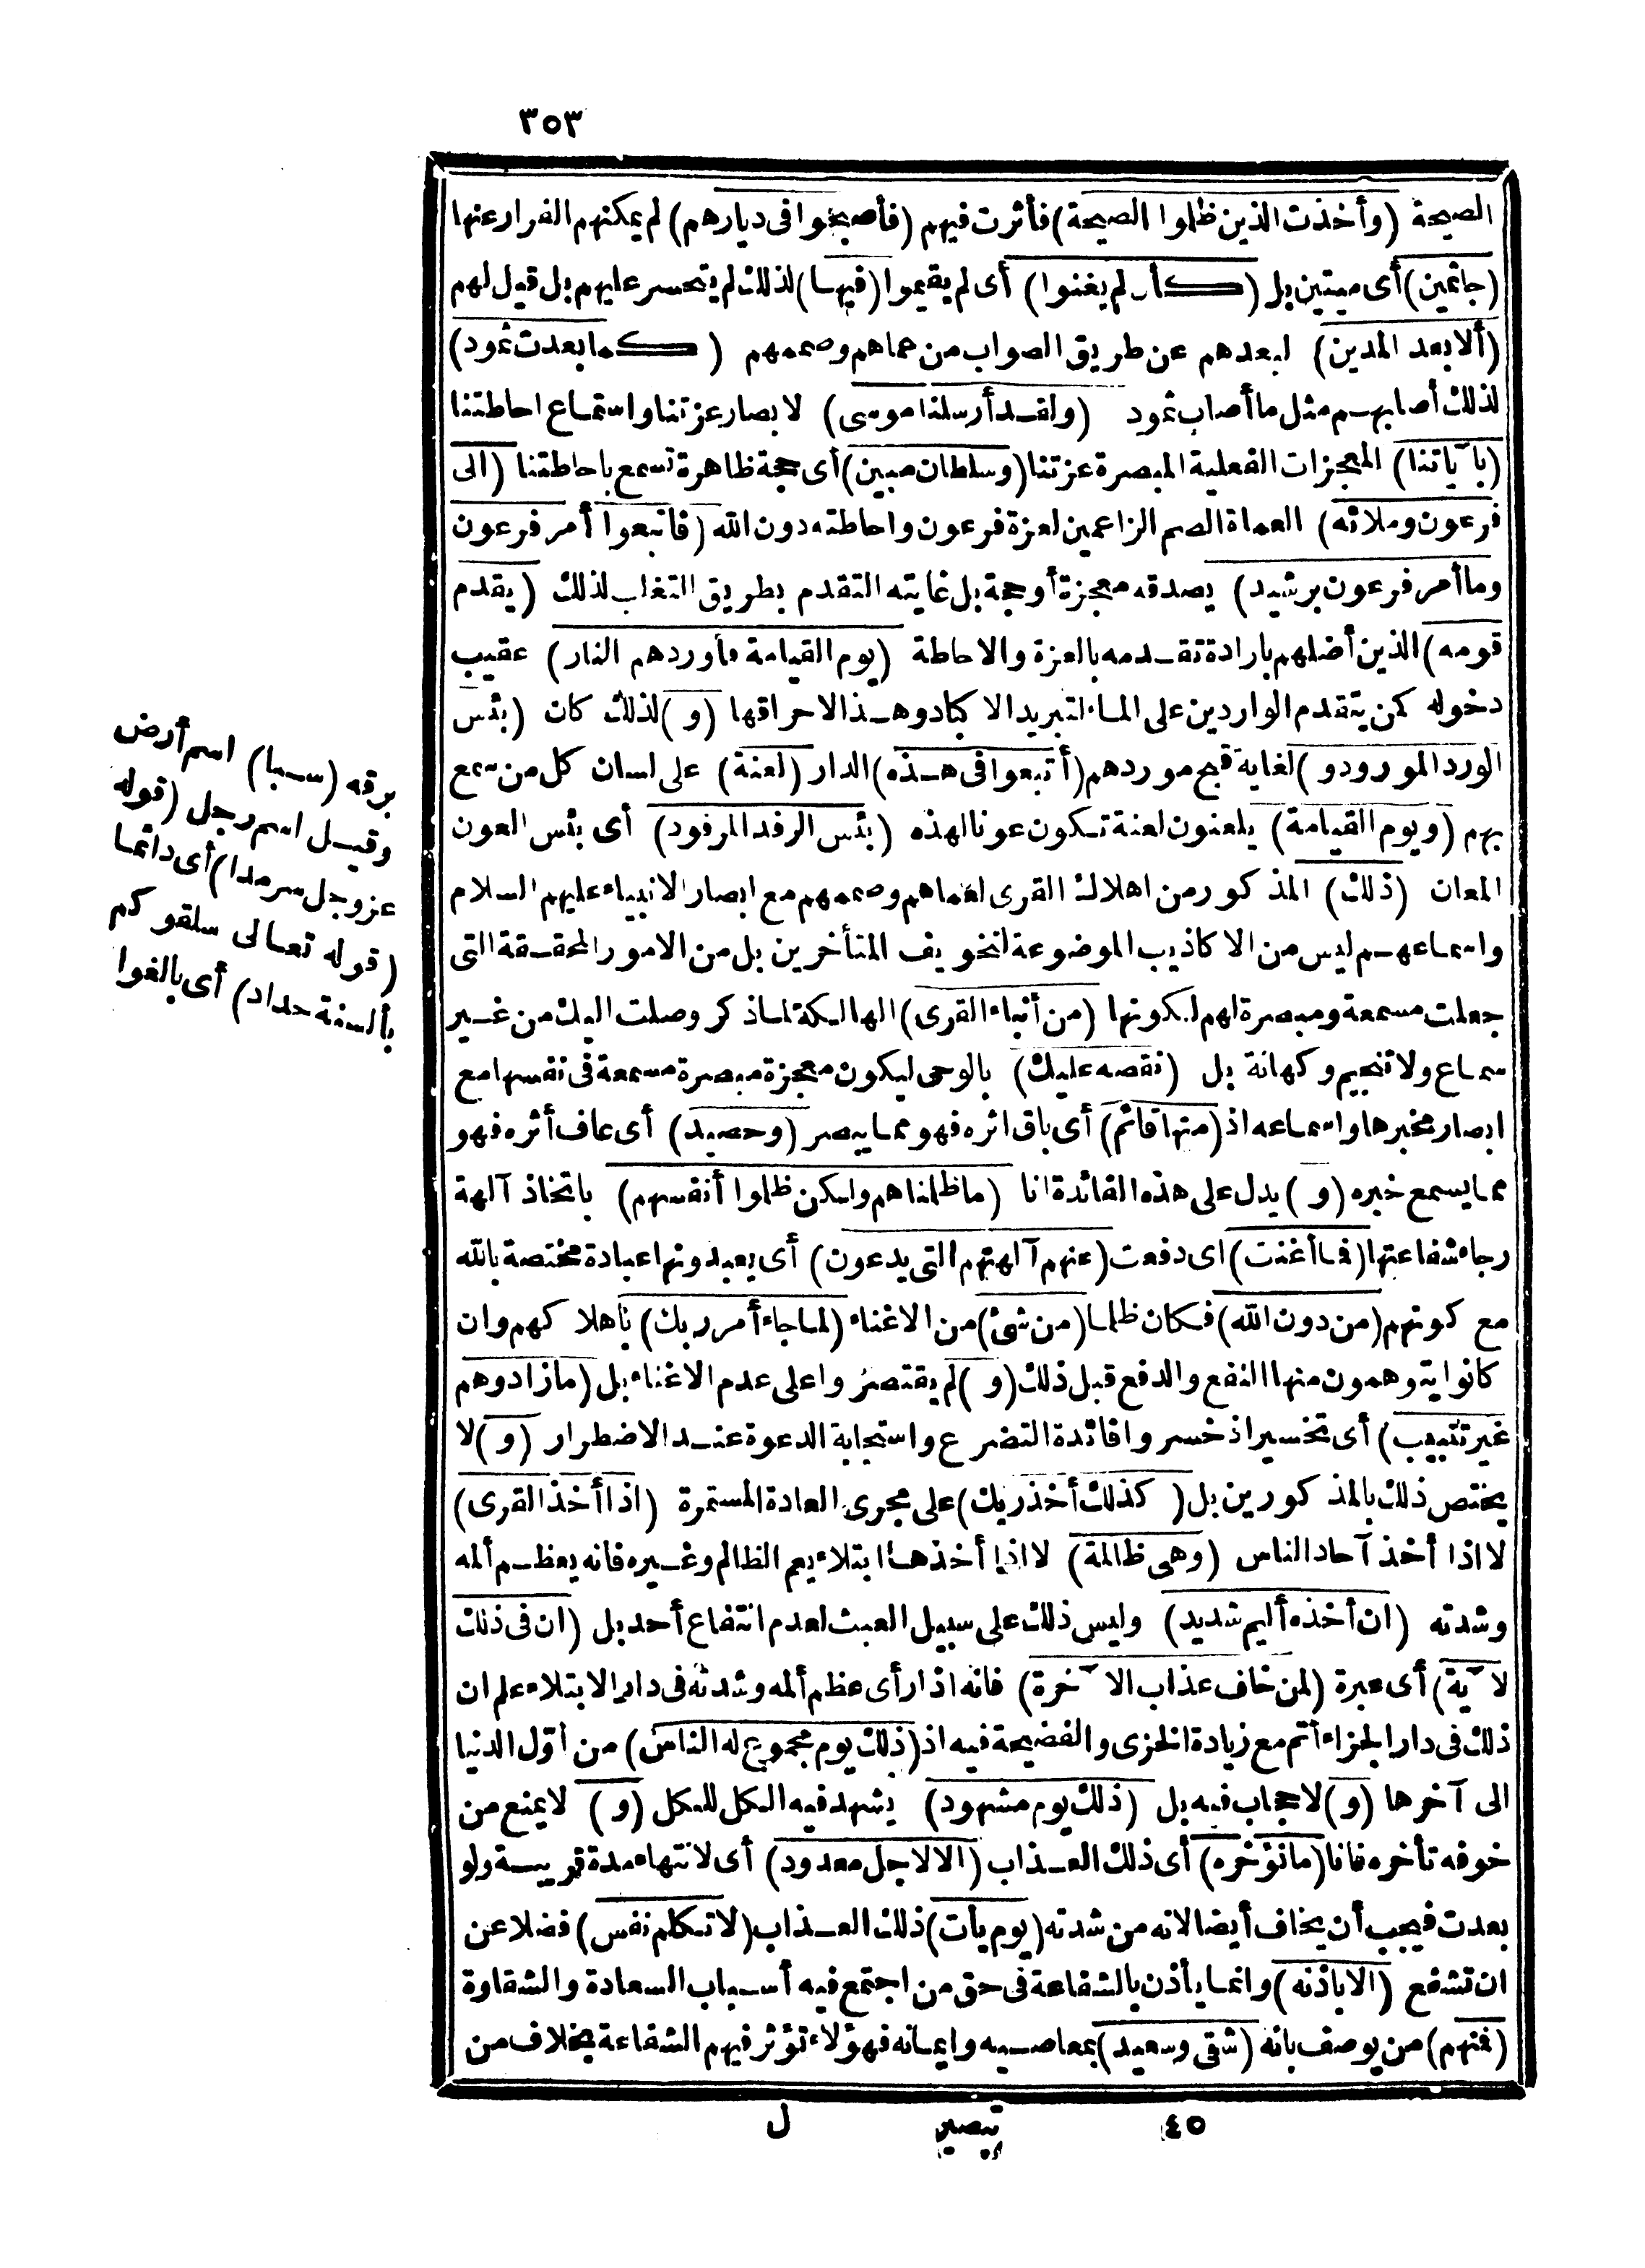 ٣٥٣
الصيحة (وأخذت الذين ظلموا الصيحة) فأثرت فيهم (فأصبحوا فى ديارهم) لم يمكنهم الفرار عنها
(جاثمين) أى ميتين بل (كأن لم يغنوا) أى لم يقيموا (فيها) لذلك لم يتحسر عليهم بل قيل لهم
(ألا بعد المدين) لبعدهم عن طريق الصواب من عماهم وصممهم (كما بعدت ثمود)
لذلك أصابهم مثل ما أصاب ثمود (ولقد أرسلنا موسى) لابصار عزتنا واستماع احاطتنا
(بآياتنا) المعجزات الفعلية المبصرة عزتنا (وسلطان مبين) أى حجة ظاهرة تسمع باحاطتنا (الى
فرعون وملائه) العماة الصم الزاعمين لعزة فرعون واحاطته دون الله (فاتبعوا أمر فرعون
وما أمر فرعون برشيد) يصدقه معجزة أو حجة بل غايته التقدم بطريق التغلب لذلك (يقدم
قومه) الذين أضلهم بارادة تقدمه بالعزة والاحاطة (يوم القيامة فأوردهم النار) عقيب
دخوله كمن يتقدم الواردين على الماء لتبريد الاكباد وهذا لاحراقها (و) لذلك كان (بئس
الورد المورود) لغاية قبح موردهم (أتبعوا فى هذه) الدار (لعنة) على لسان كل من سمع
بهم (ويوم القيامة) يلعنون لعنة تكون عونا لهذه (بئس الرفد المرفود) أى بئس العون
المعان (ذلك) المذكور من اهلاك القرى لعماهم وصممهم مع ابصار الانبياء عليهم السلام
واسماعهم ليس من الاكاذيب الموضوعة لتخويف المتأخرين بل من الامور المحققة التى
جعلت مسمعة ومبصرة لهم لكونها (من أنباء القرى) الهالكة لما ذكر وصلت اليك من غير
سماع ولا تنجيم وكهانة بل (نقصه عليك) بالوحى ليكون معجزة مبصرة مسمعة فى نفسها مع
ابصار مخبرها واسماعه اذ (منها قائم) أى باق اثره فهو مما يبصر (وحصيد) أى عاف أثره فهو
مما يسمع خبره (و) يدل على هذه الفائدة انا (ما ظلمناهم ولكن ظلموا أنفسهم) باتخاذ آلهة
رجاء شفاعتها (فما أغنت) اى دفعت (عنهم آلهتهم التى يدعون) أى يعبدونها عبادة مختصة بالله
مع كونهم (من دون الله) فكان ظلما (من شئ) من الاغناء (لما جاء أمر ربك) باهلاكهم وان
كانوا يتوهمون منها النفع والدفع قبل ذلك (و) لم يقتصروا على عدم الاغناء بل (ما زادوهم
غير تتبيب) أى تخسير اذ خسروا فائدة التضرع واستجابة الدعوة عند الاضطرار (و) لا
يختص ذلك بالمذكورين بل (كذلك أخذ ربك) على مجرى العادة المستمرة (اذا أخذ القرى)
لا اذا أخذ آحاد الناس (وهى ظالمة) لا اذا أخذها ابتلاء يعم الظالم وغيره فانه يعظم ألمه
وشدته (ان أخذه أليم شديد) وليس ذلك على سبيل العبث لعدم انتفاع أحد بل (ان فى ذلك
لآية) أى عبرة (لمن خاف عذاب الآخرة) فانه اذا رأى عظم ألمه وشدته فى دار الابتلاء علم ان
ذلك فى دار الجزاء أتم مع زيادة الخزى والفضيحة فيه اذ (ذلك يوم مجموع له الناس) من أول الدنيا
الى آخرها (و) لا حجاب فيه بل (ذلك يوم مشهود) يشهد فيه الكل للكل (و) لا يمنع من
خوفه تأخره فانا (ما نؤخره) أى ذلك العذاب (الا لاجل معدود) أى لانتهاء مدة قريبة ولو
بعدت فيجب أن يخاف أيضا لانه من شدته (يوم يأت) ذلك العذاب (لا تكلم نفس) فضلا عن
ان تشفع (الا باذنه) وانما يأذن بالشفاعة فى حق من اجتمع فيه أسباب السعادة والشقاوة
(فمنهم) من يوصف بانه (شقى وسعيد) بمعاصيه وايمانه فهؤلاء تؤثر فيهم الشفاعة بخلاف من
برقه (سبا) اسم أرض
وقيل اسم رجل (قوله
عزوجل سرمدا) أى دائما
(قوله تعالى سلقوكم
بألسنة حداد) أى بالغوا
٤٥ تبصير ل